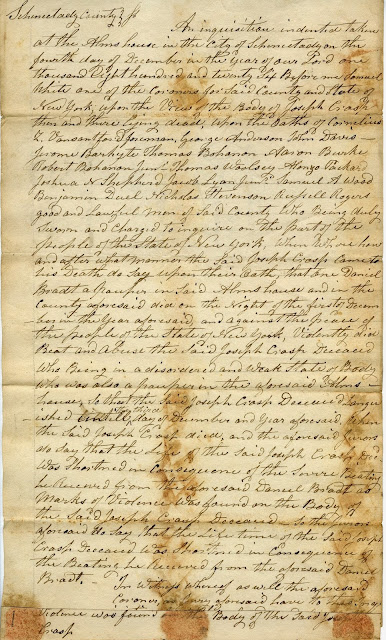 Schenectady County } ss
An inquisition indented taken
at the Alms house in the City of Schenectady on the
fourth day of December in the Year of our Lord one
thousand Eight hundred and twenty Six Before me Samuel
White one of the Coroners for Said County and State of
New York, upon the View of the Body of Joseph Crasp
then and there lying dead, upon the Oaths of Cornelius
Z. Vansantford foreman, George Anderson John Davis
Jerome Barhyte Thomas Bohanon Aaron Burke
Robert Bohanon Junr. Thomas Woolsey Alonzo Packard
Joshua N Shepherd Lyan Junr. Samuel A Wood
Benjamin Duel Nicholas Stevenson Rusell Rogers
good and Lawfull Men of Said County Who Being duly
Sworn and Charged to inquire on the part of the
people of the State of New York, When Where how
and after what Manner the Said Joseph Crasp Came to
his Death do Say upon their Oath, that one Daniel
Bradt a Pauper in Said Alms house and in the
County aforesaid did on the Night of the first Decem
ber in the Year aforesaid, and against the peace of
the people of the State of New York, Violently did
Beat and Abuse the Said Joseph Crasp Deceased
Who Being in a disordered and Weak State of Body
Who was also a pauper in the aforesaid Alms
house, So that the Said Joseph Crasp Deceased Langu
ished untill third day of December and Year aforesaid When
the Said Joseph Crasp died, and the aforesaid Jurors
do Say that the Life of the Said Joseph Crasp Decd
Was Shortned in Consequence of the Severe Beating
he Received from the aforesaid Daniel Bradt as
Marks of Violence was found on the Body of
the Said Joseph Crasp Deceased. So the Jurors
aforesaid do Say, that the Life time of the Said Joseph
Crasp Deceased Was Shortned in Consequence of
the Beating he Received from the aforesaid Daniel
Bradt.
In Witness whereof as well the aforesaid
Coroner as aforesaid have to this
Violence was found on the Body of the Said Jos
Crasp